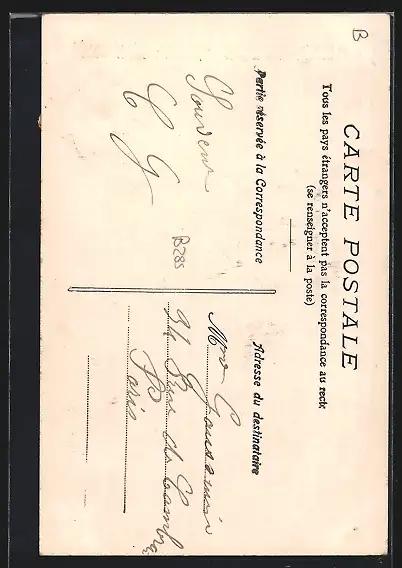 B
CARTE POSTALE
Tous les pays étrangers n'acceptent pas la correspondance au recto
(se renseigner à la poste)
Partie réservée à la Correspondance
Souvenir
C G
B285
Adresse du destinataire
Mme C.
34 Rue de
Paris